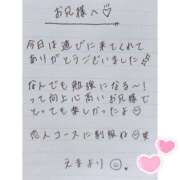 お兄様へ♡
今日は遊びに来てくれて
ありがとうございました
なんでも勉強になる〜!
って向上心高いお兄様で
とっても楽しかったよ☺
恋人コースに制服ね
えまより☺